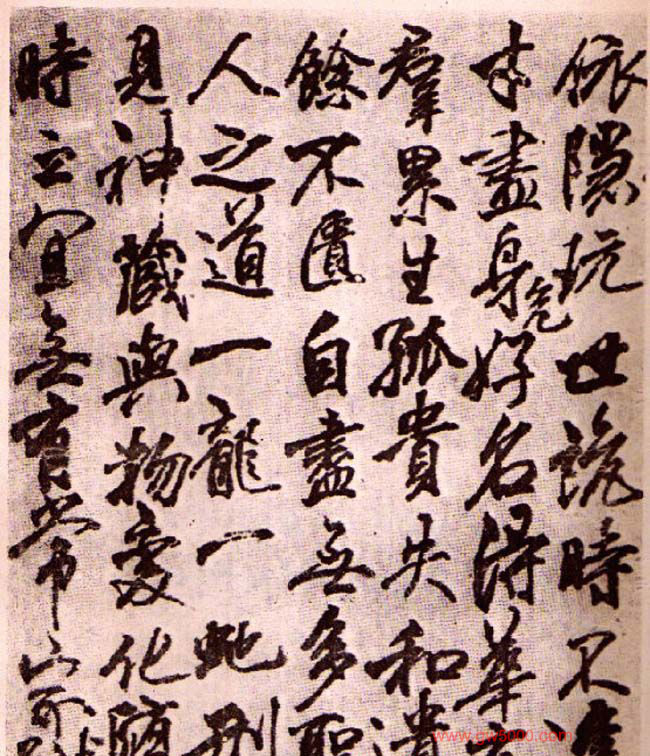 依隱玩世詭時不逢
才盡身危好名得華
羣累生孤貴失和遺
餘不匱自盡無多聖
人之道一龍一虵形
見神藏與物變化隨
時之宜無有常家